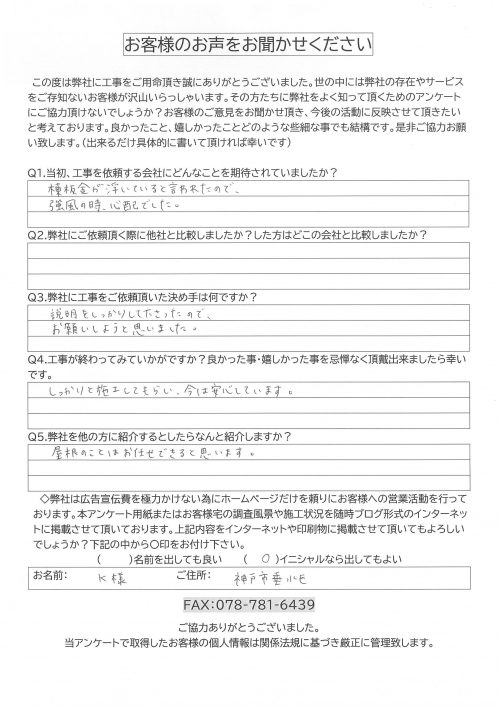 お客様のお声をお聞かせください
この度は弊社に工事をご用命頂き誠にありがとうございました。世の中には弊社の存在やサービス
をご存知ないお客様が沢山いらっしゃいます。その方たちに弊社をよく知って頂くためのアンケート
にご協力頂けないでしょうか？お客様のご意見をお聞かせ頂き、今後の活動に反映させて頂きたい
と考えております。良かったこと、嬉しかったことどのような些細な事でも結構です。是非ご協力お願
い致します。（出来るだけ具体的に書いて頂ければ幸いです）
Q1.当初、工事を依頼する会社にどんなことを期待されていましたか？
棟板金が浮いていると言われたので、
強風の時、心配でした。
Q2.弊社にご依頼頂く際に他社と比較しましたか？した方はどこの会社と比較しましたか？
Q3.弊社に工事をご依頼頂いた決め手は何ですか？
説明をしっかりして下さったので、
お願いしようと思いました。
Q4.工事が終わってみていかがですか？良かった事・嬉しかった事を忌憚なく頂戴出来ましたら幸い
です。
しっかりと施工してもらい、今は安心しています。
Q5.弊社を他の方に紹介するとしたらなんと紹介しますか？
屋根のことはお任せできると思います。
◇弊社は広告宣伝費を極力かけない為にホームページだけを頼りにお客様への営業活動を行って
おります。本アンケート用紙またはお客様宅の調査風景や施工状況を随時ブログ形式のインターネッ
トに掲載させて頂いております。上記内容をインターネットや印刷物に掲載させて頂いてもよろしい
でしょうか？下記の中から〇印をお付け下さい。
（　　）名前を出しても良い　（　〇　）イニシャルなら出してもよい
お名前：　K様　ご住所：　神戸市垂水区
FAX:078-781-6439
ご協力ありがとうございました。
当アンケートで取得したお客様の個人情報は関係法規に基づき厳正に管理致します。